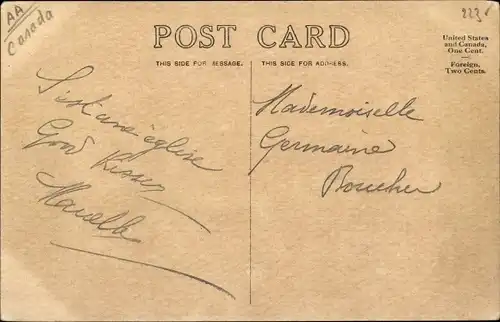 AA
Canada
223
POST CARD
THIS SIDE FOR MESSAGE.
THIS SIDE FOR ADDRESS.
United States
and Canada,
One Cent.
Foreign,
Two Cents.
église
Good Kisses
Mademoiselle
Germaine
Boucher